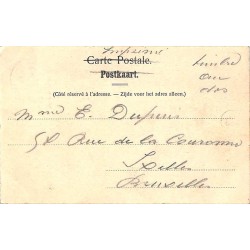 Imprimé
Carte Postale.
Postkaart.
(Côté réservé à l'adresse. — Zijde voor het adres alleen.)
timbre
au
dos
Mme E. Dupuis
58 Rue de la Couronne
Ixelles
Bruxelles